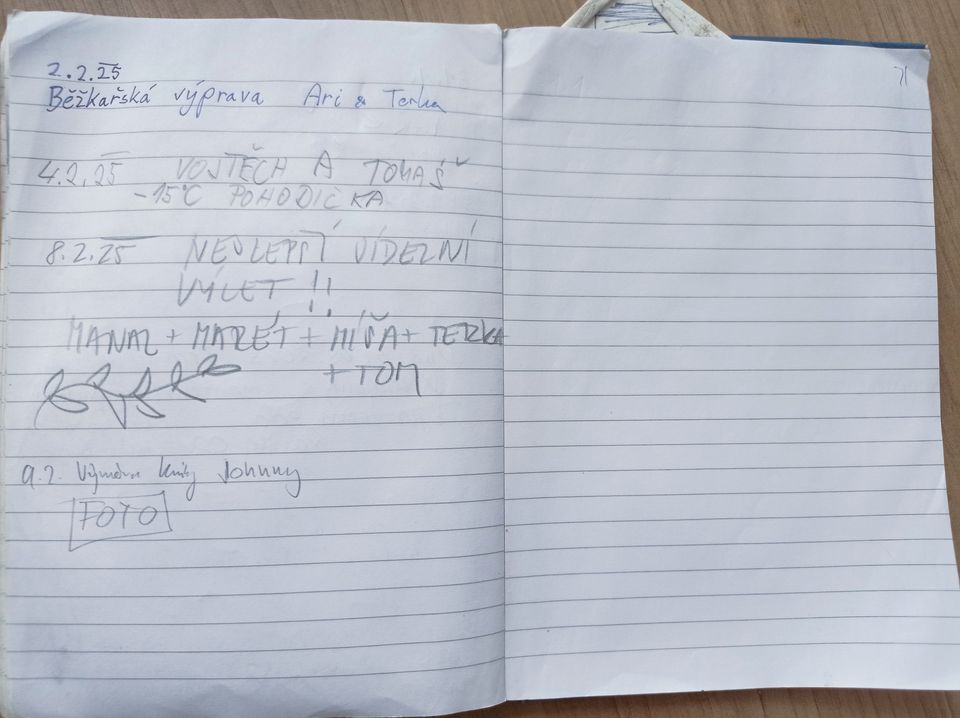 2.2.25
Běžkařská výprava Ari & Terka
4.2.25 VOJTĚCH A TOMÁŠ
-15°C POHODIČKA
8.2.25 NEJLEPŠÍ VÍDEZNÍ
VÝLET !!
+ MAREŤ + MÍŠA + TERKA
+ TOM
9.2. Výměna knihy Johnny
FOTO
71